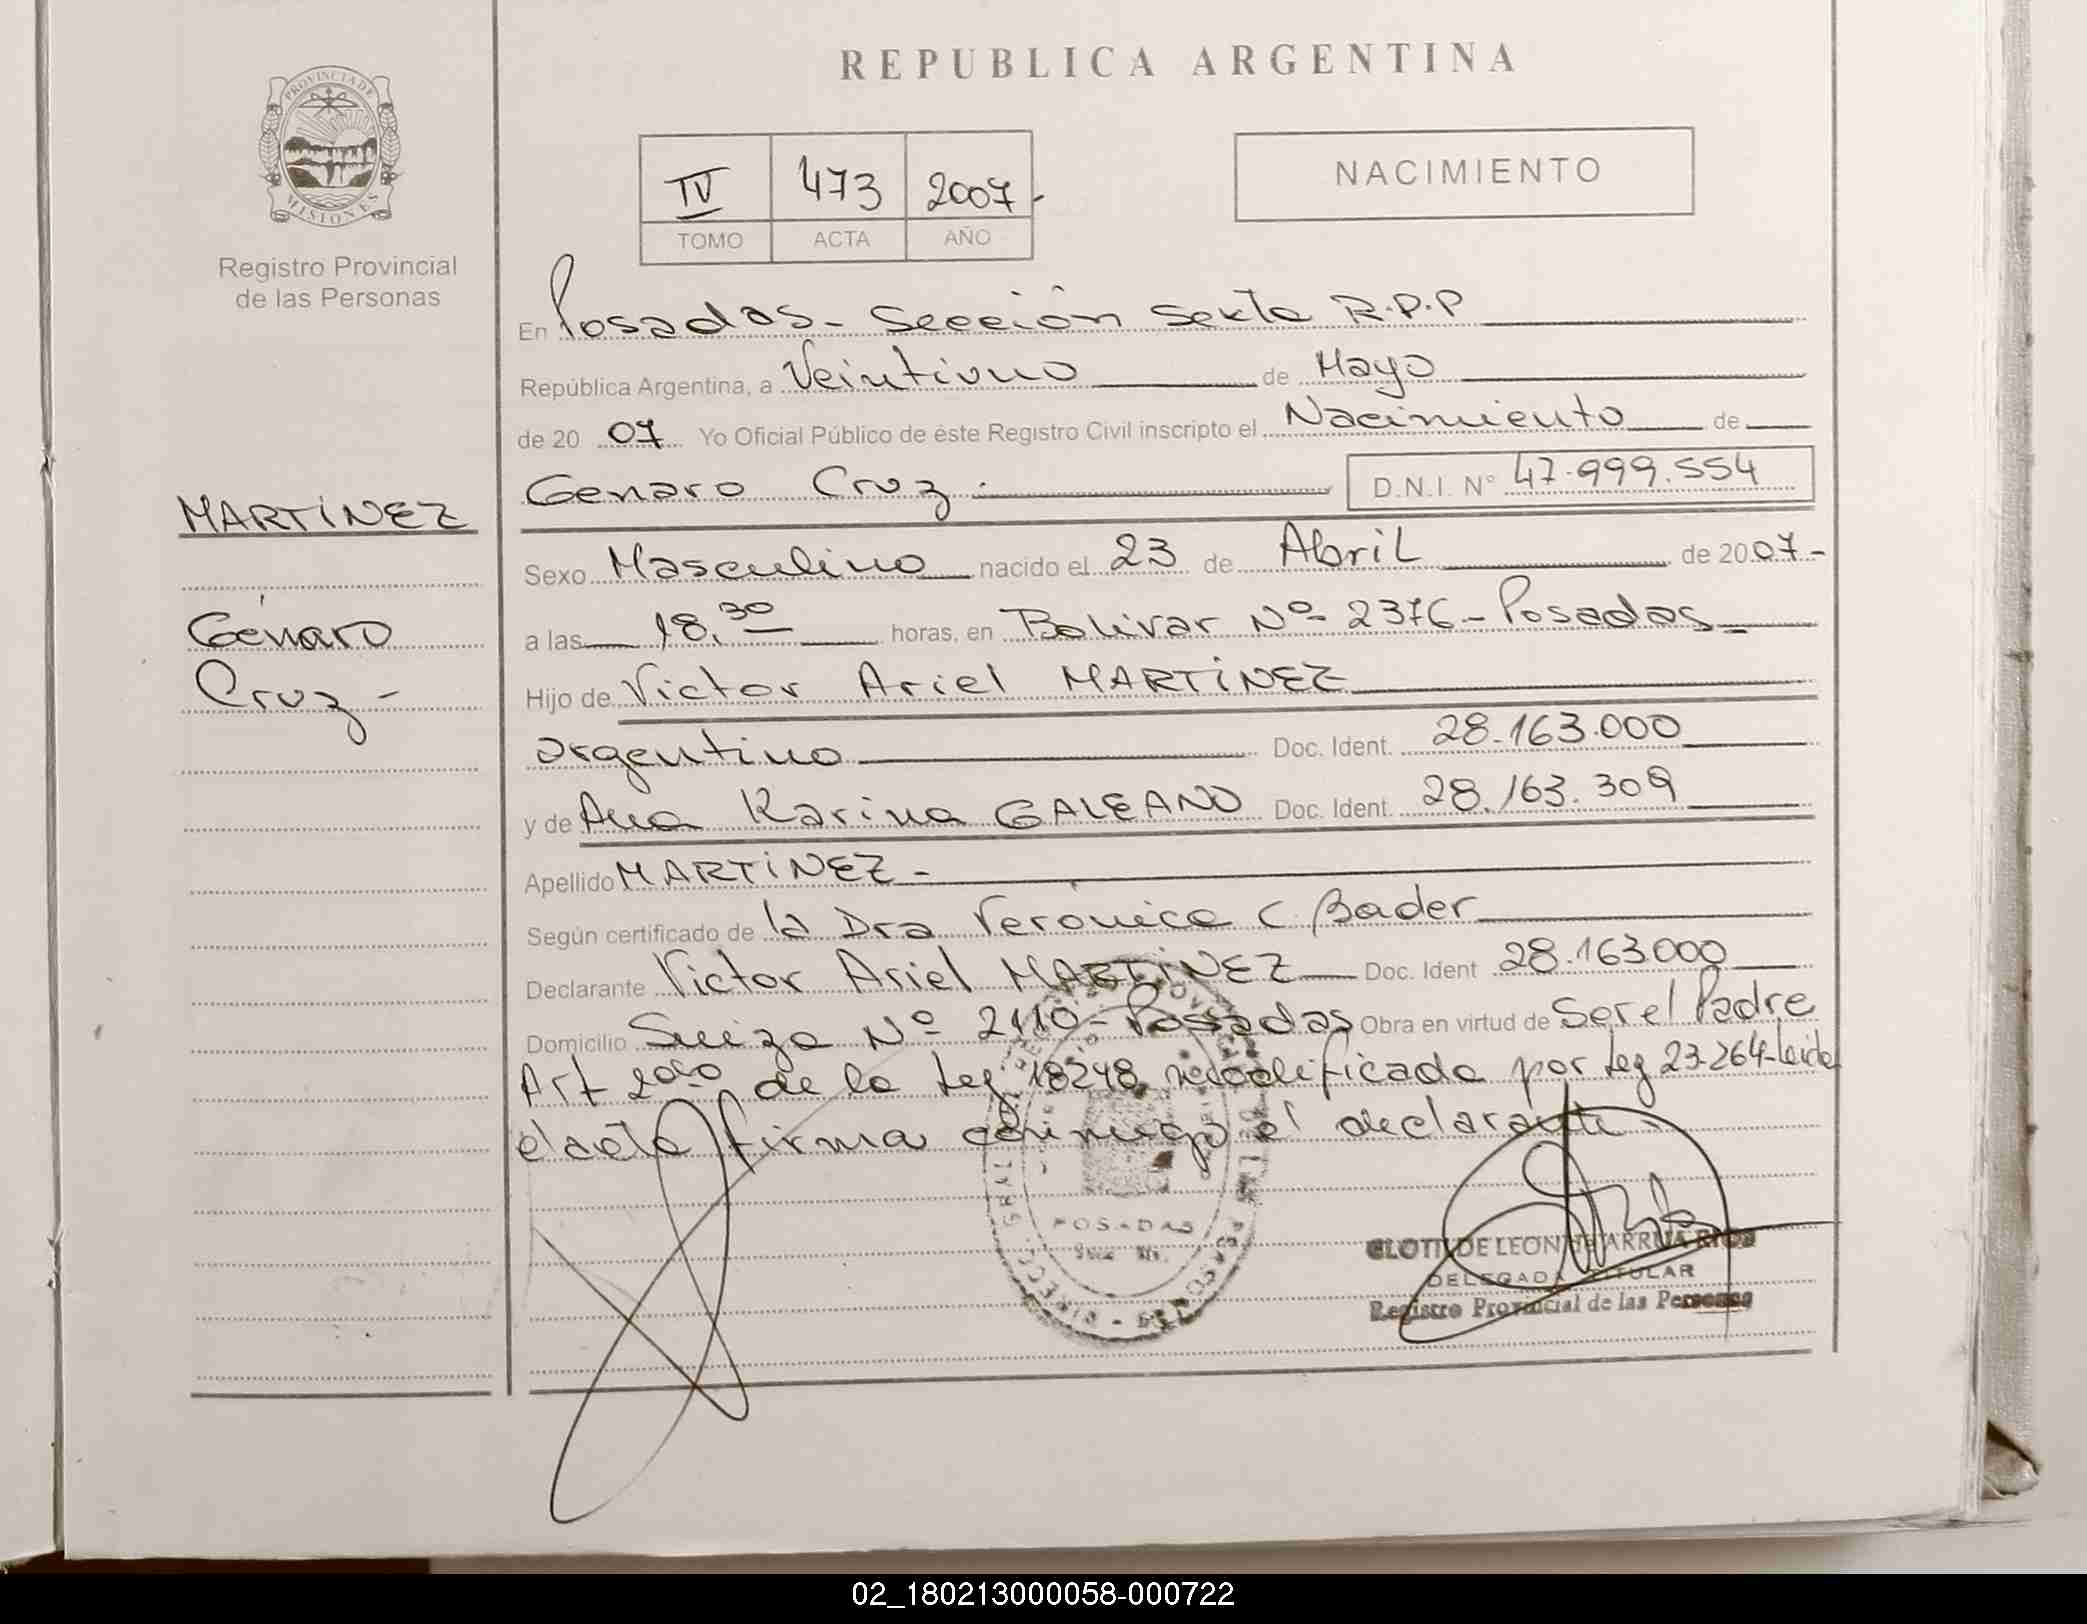 REPUBLICA ARGENTINA
PROVINCIA DE
MISIONES
Registro Provincial
de las Personas
IV 473 2007-
TOMO ACTA AÑO
NACIMIENTO
En Posadas- Sección Sexta R.P.P
República Argentina, a Veintiuno de Mayo
de 20 07 Yo Oficial Público de éste Registro Civil inscripto el Nacimiento de
Genaro Cruz.- D.N.I. N° 47.999.554
MARTINEZ
Genaro
Cruz-
Sexo Masculino nacido el 23 de Abril de 2007-
a las 18.30 horas, en Bolivar Nº 2376-Posadas-
Hijo de Victor Ariel MARTINEZ
argentino Doc. Ident. 28.163.000
y de Ana Karina GALEANO Doc. Ident. 28.163.309
Apellido MARTINEZ-
Según certificado de la Dra Veronica C Bader
Declarante Victor Ariel MARTINEZ Doc. Ident 28.163.000
Domicilio Suiza Nº 2110-Posadas Obra en virtud de Ser el Padre
Art 2do de la Ley 18248 modificada por Ley 23.264-Leida
el acta firma conmigo el declarante-
POSADAS
CLOTILDE LEON ARRUA RIOS
DELEGADA TITULAR
Registro Provincial de las Personas
02_180213000058-000722